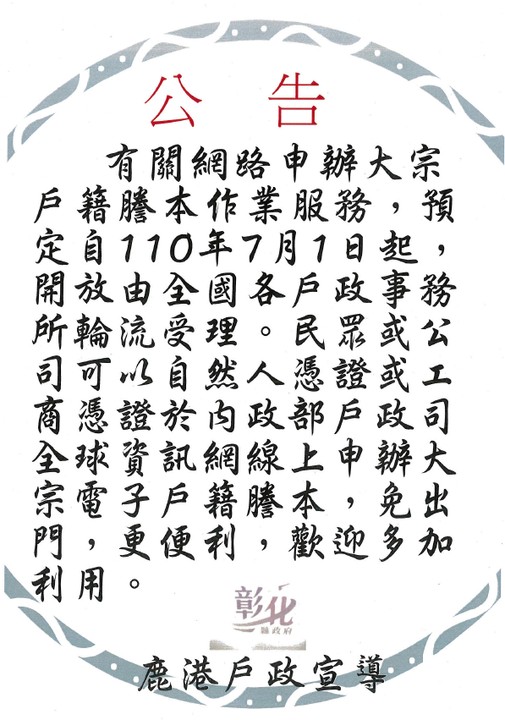 公告
有關網路申辦大宗
戶籍謄本作業服務，預
定自110年7月1日起，
開放由全國各戶政事務
所輪流受理。民眾或公
司可以自然人憑證或工
商憑證於內政部戶政司
全球資訊網線上申辦大
宗電子戶籍謄本，免出
門，更便利，歡迎多加
利用。
彰化
縣政府
鹿港戶政宣導